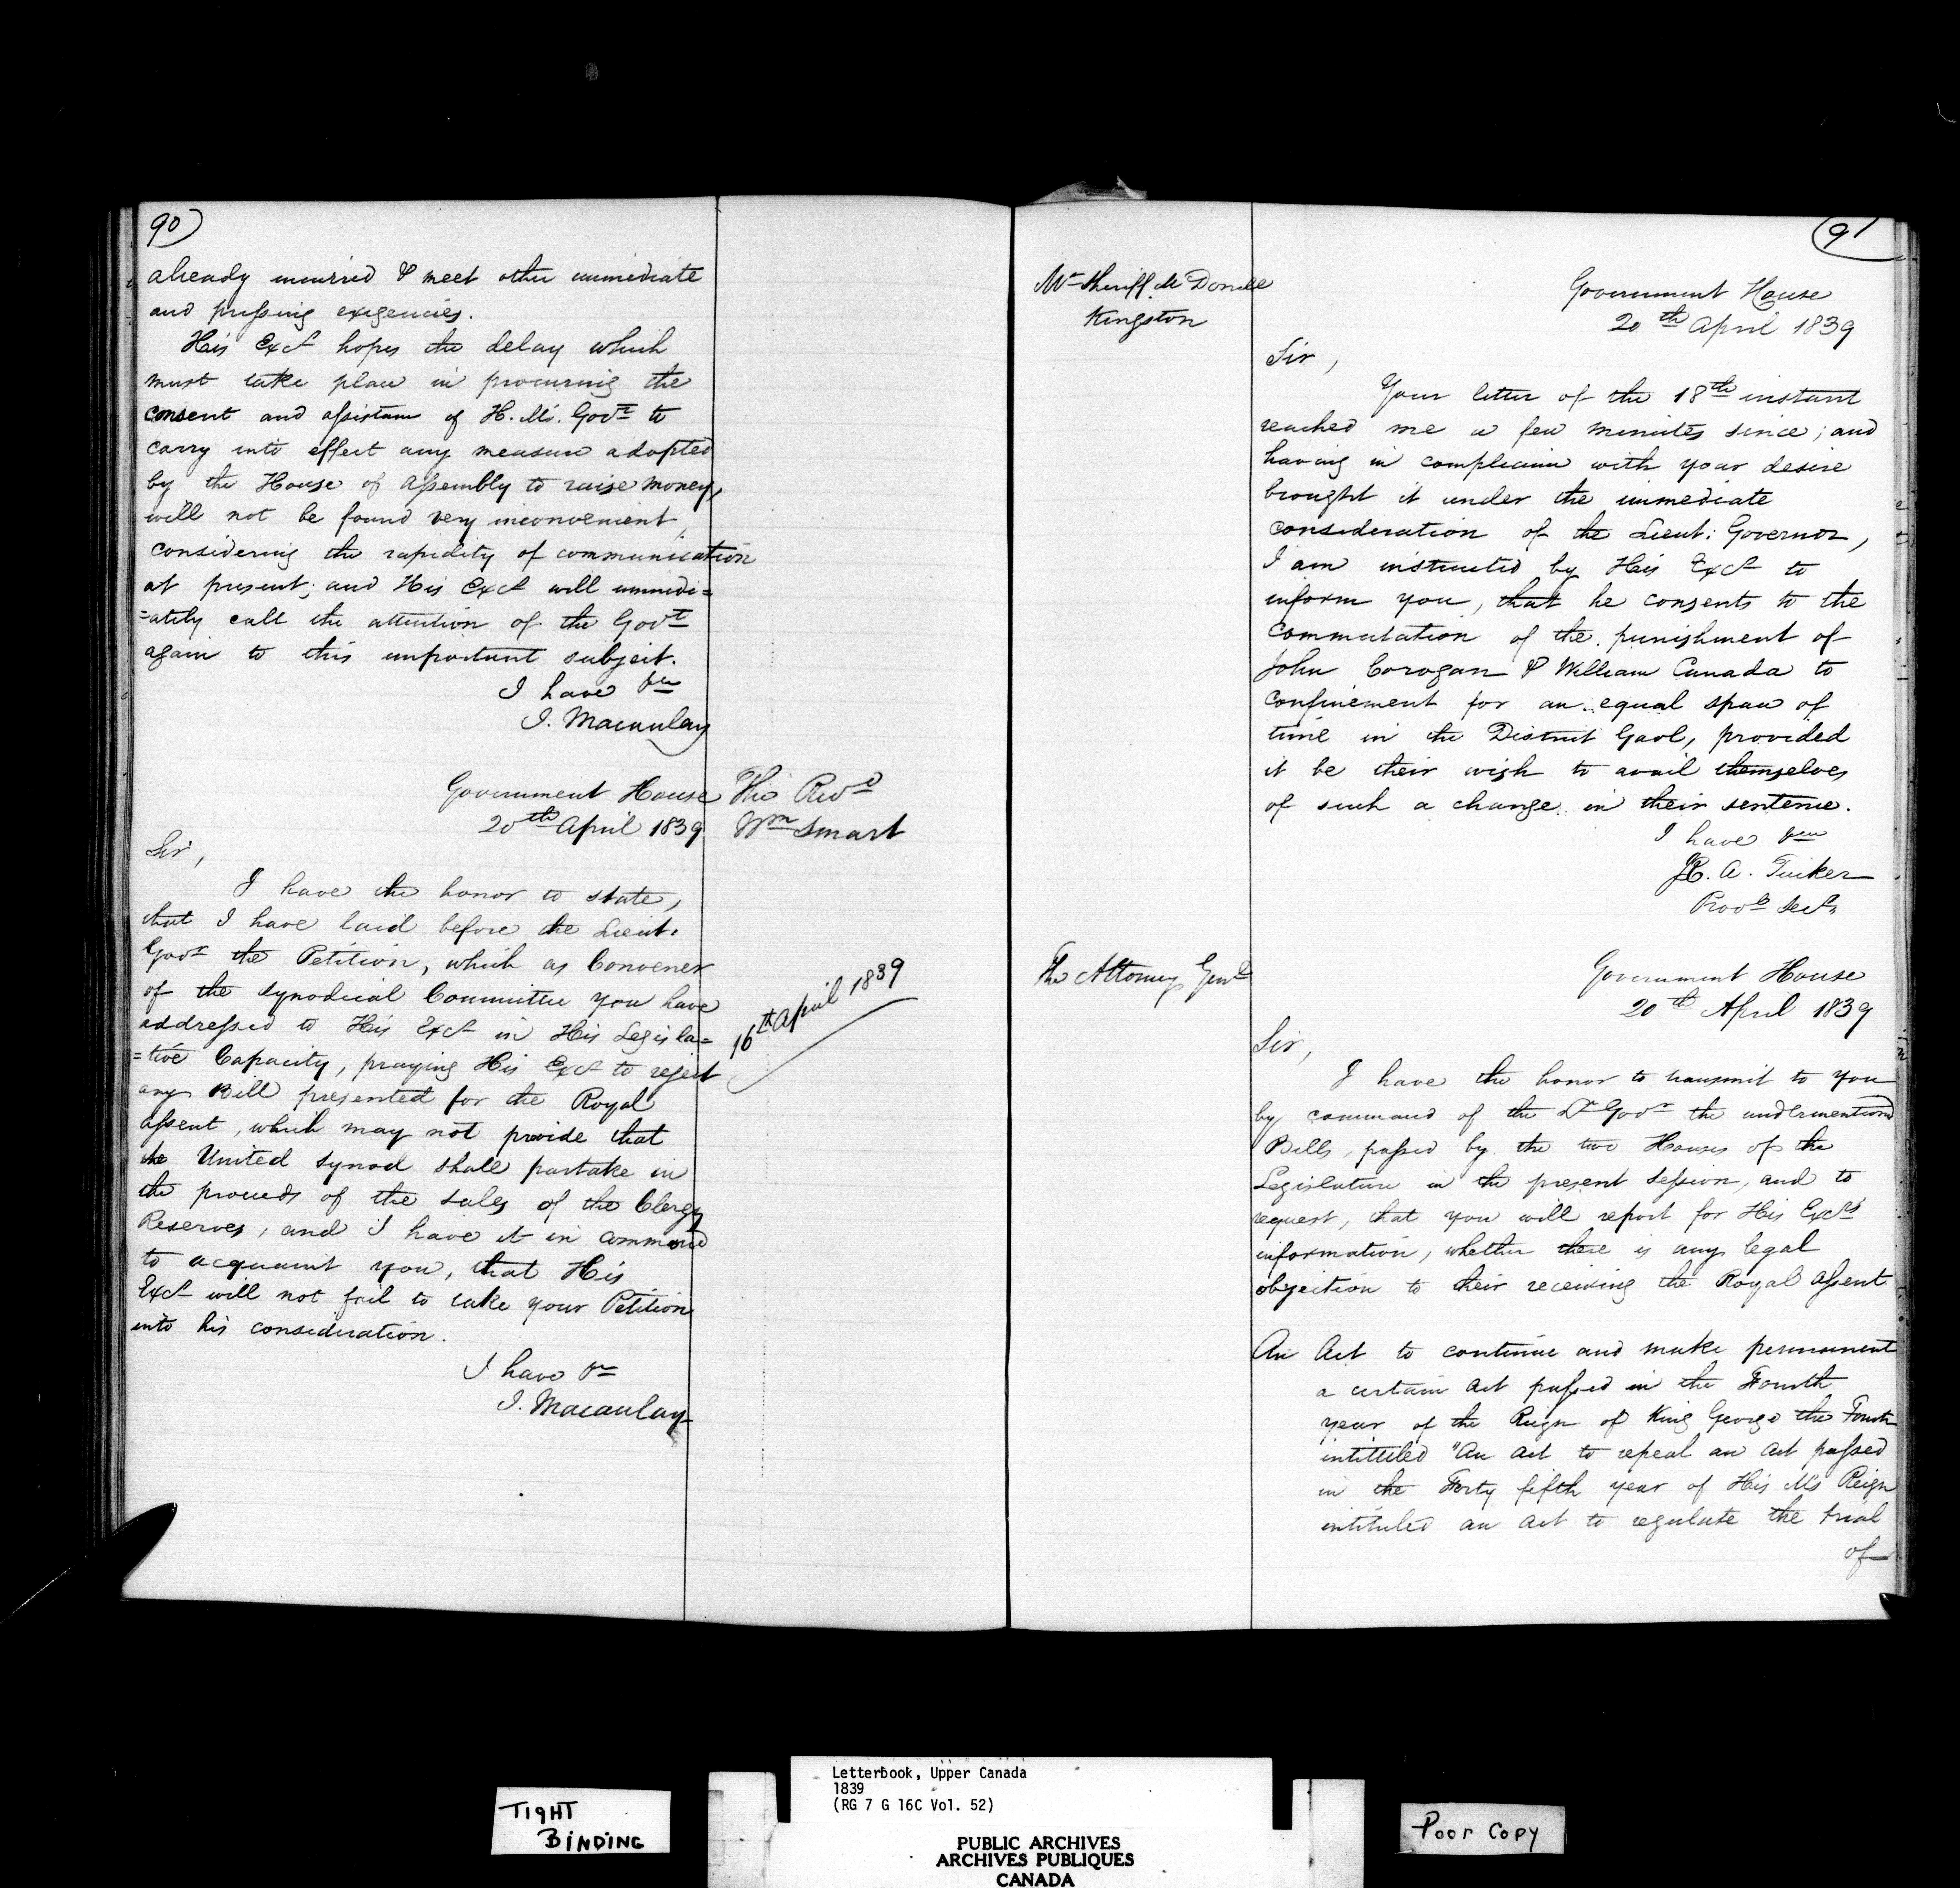 90
already incurred & meet other immediate
and pressing exigencies.
His Excy hopes the delay which
must take place in procuring the
consent and assistance of H. M's. Govt to
carry into effect any measure adopted
by the House of Assembly to raise money,
will not be found very inconvenient,
considering the rapidity of communication
at present; and His Excy will immedi=
=ately call the attention of the Govt
again to this important subject.
I have &c
J. Macaulay
Government House
20th April 1839
The Revd
Wm Smart
Sir,
I have the honor to state,
that I have laid before the Lieut:
Govr the Petition, which as Convener
of the Synodical Committee you have
addressed to His Excy in His Legisla=
=tive Capacity, praying His Excy to reject
any Bill presented for the Royal
Assent, which may not provide that
the United Synod shall partake in
the proceeds of the sales of the Clergy
Reserves, and I have it in command
to acquaint you, that His
Excy will not fail to take your Petition
into his consideration.
16th April 1839
I have &c
J. Macaulay
91
Mr Sheriff McDonell
Kingston
Government House
20th April 1839
Sir,
Your letter of the 18th instant
reached me a few minutes since; and
having in compliance with your desire
brought it under the immediate
consideration of the Lieut: Governor,
I am instructed by His Excy to
inform you, that he consents to the
commutation of the punishment of
John Corogan & William Canada to
confinement for an equal space of
time in the District Gaol, provided
it be their wish to avail themselves
of such a change in their sentence.
I have &c
R. A. Tucker
Provl Secy
The Attorney Genl
Government House
20th April 1839
Sir,
I have the honor to transmit to you
by command of the Lt Govr the undermentioned
Bills, passed by the two Houses of the
Legislature in the present Session, and to
request, that you will report for His Excy's
information, whether there is any legal
objection to their receiving the Royal Assent
An Act to continue and make permanent
a certain Act passed in the Fourth
year of the Reign of King George the Fourth
intituled "An Act to repeal an Act passed
in the Forty fifth year of His M's Reign
intituled an Act to regulate the trial
of
TIGHT
BINDING
Letterbook, Upper Canada
1839
(RG 7 G 16C Vol. 52)
PUBLIC ARCHIVES
ARCHIVES PUBLIQUES
CANADA
Poor Copy